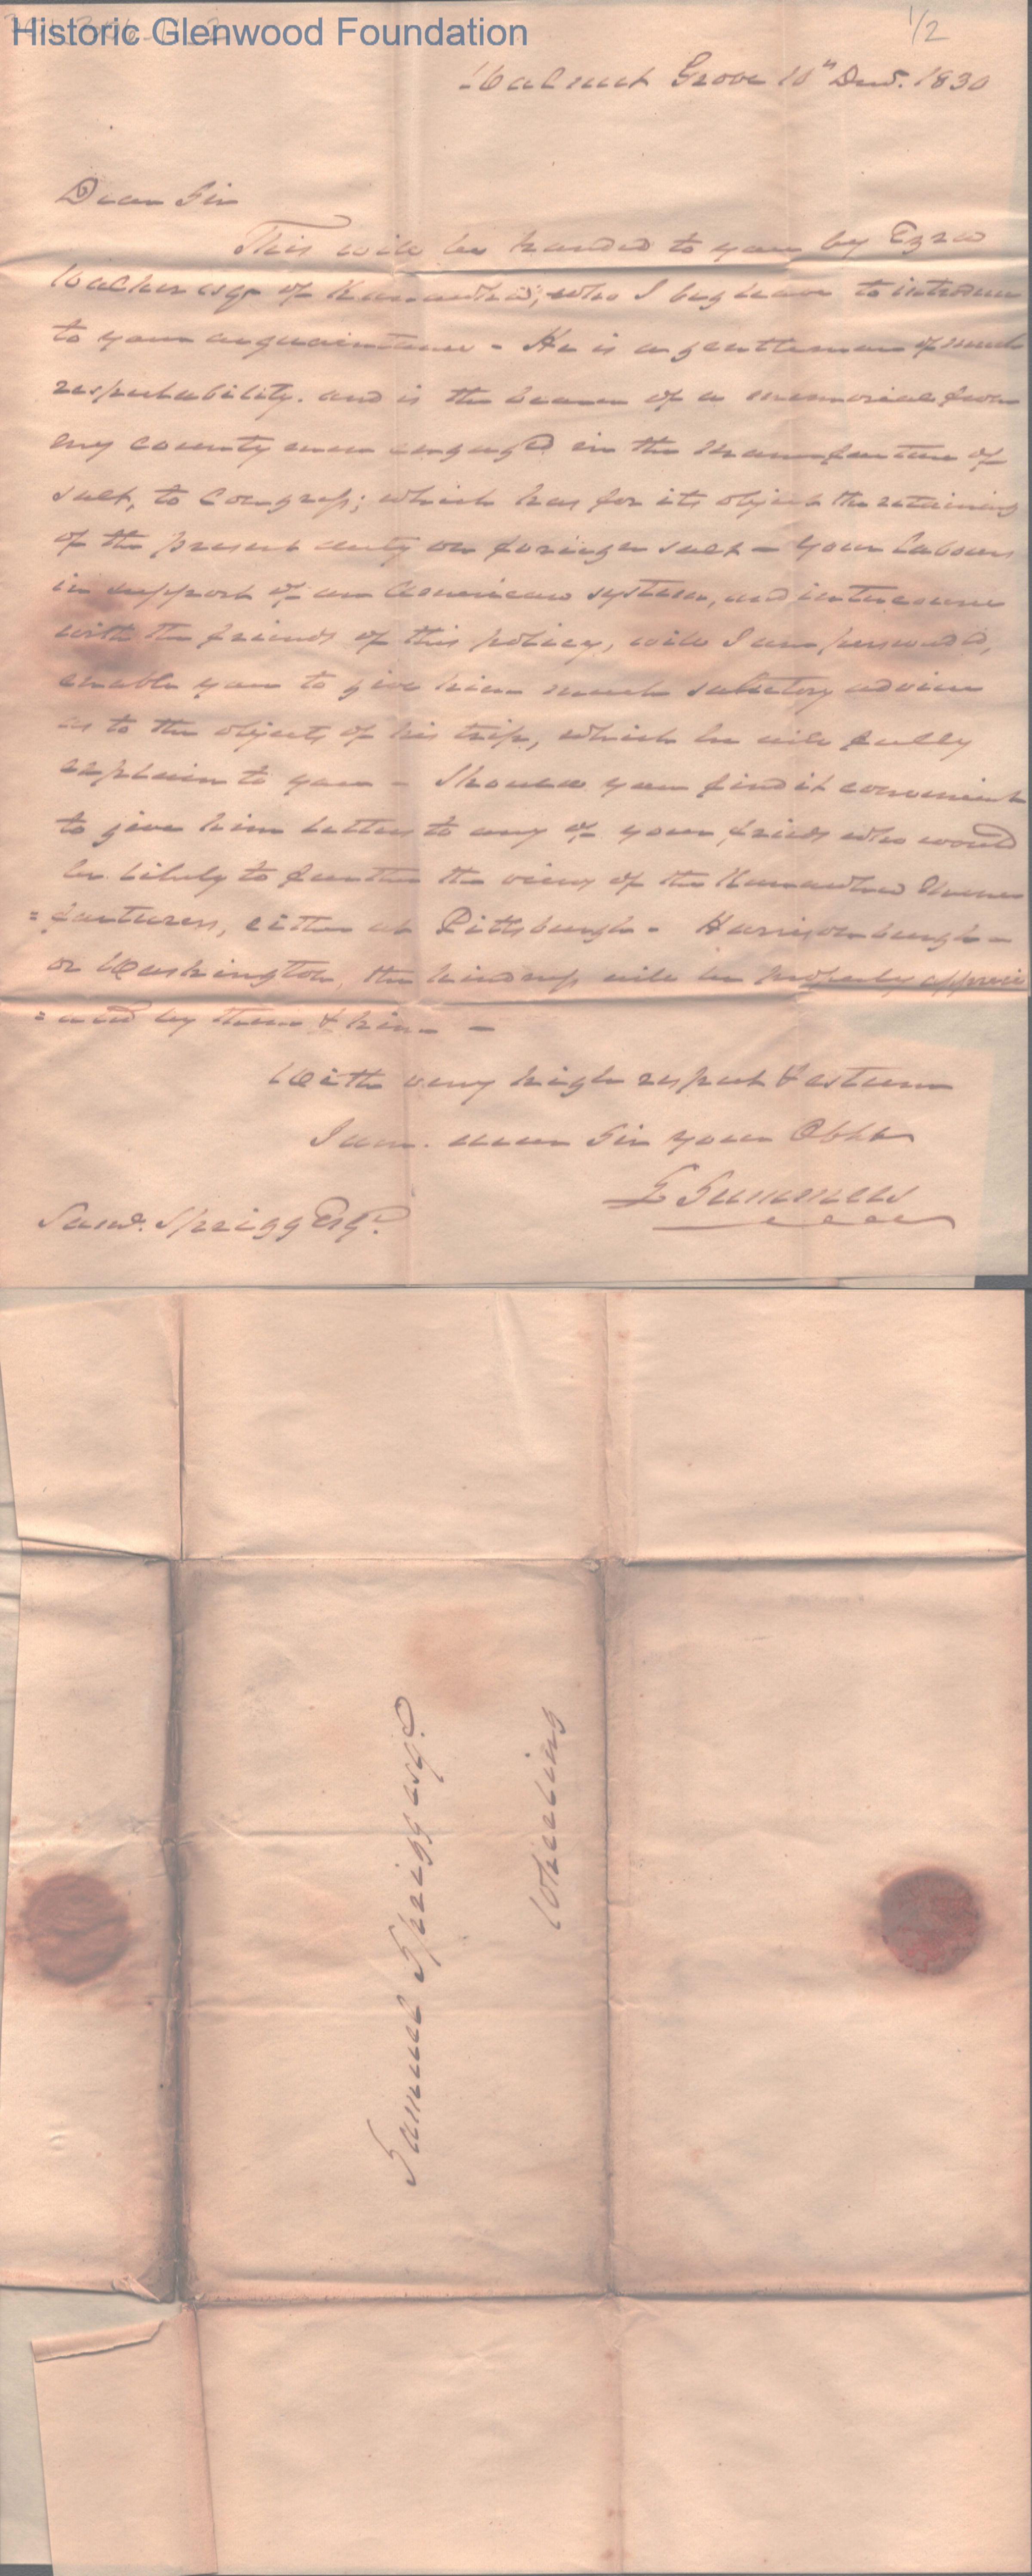 Historic Glenwood Foundation
1/2
Walnut Grove 10th Decr. 1830
Dear Sir
This will be handed to you by Ezra
Walker esqr of Kanawha; who I beg leave to introduce
to your acquaintance - He is a gentleman of much
respectability. and is the bearer of a memorial from
my county men engaged in the Manufacture of
salt, to Congress; which has for its object the retaining
of the present duty on foriegn salt - Your labours
in support of an American system, and intercourse
with the friends of this policy, will I am perswaded,
enable you to give him much salutory advice
as to the objects of his trip, which he will fully
explain to you - Should you find it convenient
to give him letters to any of your friends who would
be likely to further the views of the Kanawha Manu
=facturers, either at Pittsburgh - Harrisonburgh -
or Washington, the kindness will be properly appreci
=ated by them & him -
With very high respect & esteem
I am. Dear Sir your Obt
L Summers
Saml. Sprigg Esqr.
Samuel Sprigg esqr.
Wheeling